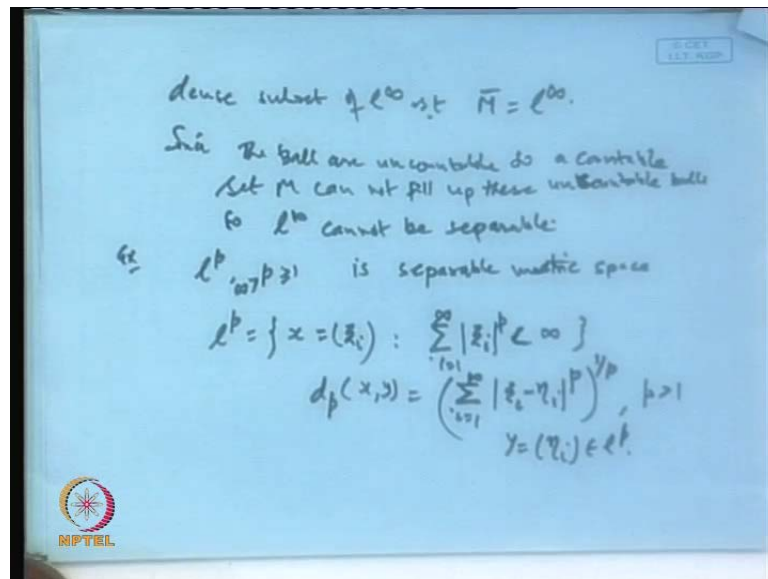 © CET
I.I.T. KGP
dense subset of l^∞ s.t. M̄ = l^∞.
Since The ball are uncountable so a countable
set M can not fill up these uncountable balls
So l^∞ cannot be separable.
Ex l^p, ∞>p≥1 is separable metric space
l^p = { x = (ξ_i) : ∑_{i=1}^∞ |ξ_i|^p < ∞ }
d_p(x,y) = (∑_{i=1}^∞ |ξ_i - η_i|^p)^{1/p}, p≥1
y = (η_i) ∈ l^p.
NPTEL